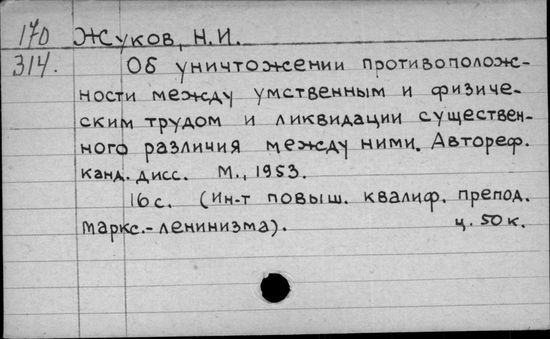 170 Жуков, Н.И.
314. Об уничтожении противополож-
ности между умственным и физиче-
ским трудом и ликвидации существен-
ного различия между ними. Автореф.
канд. дисс. М., 1953.
16 с. (Ин-т повыш. квалиф. препод.
маркс.-ленинизма). ц. 50 к.